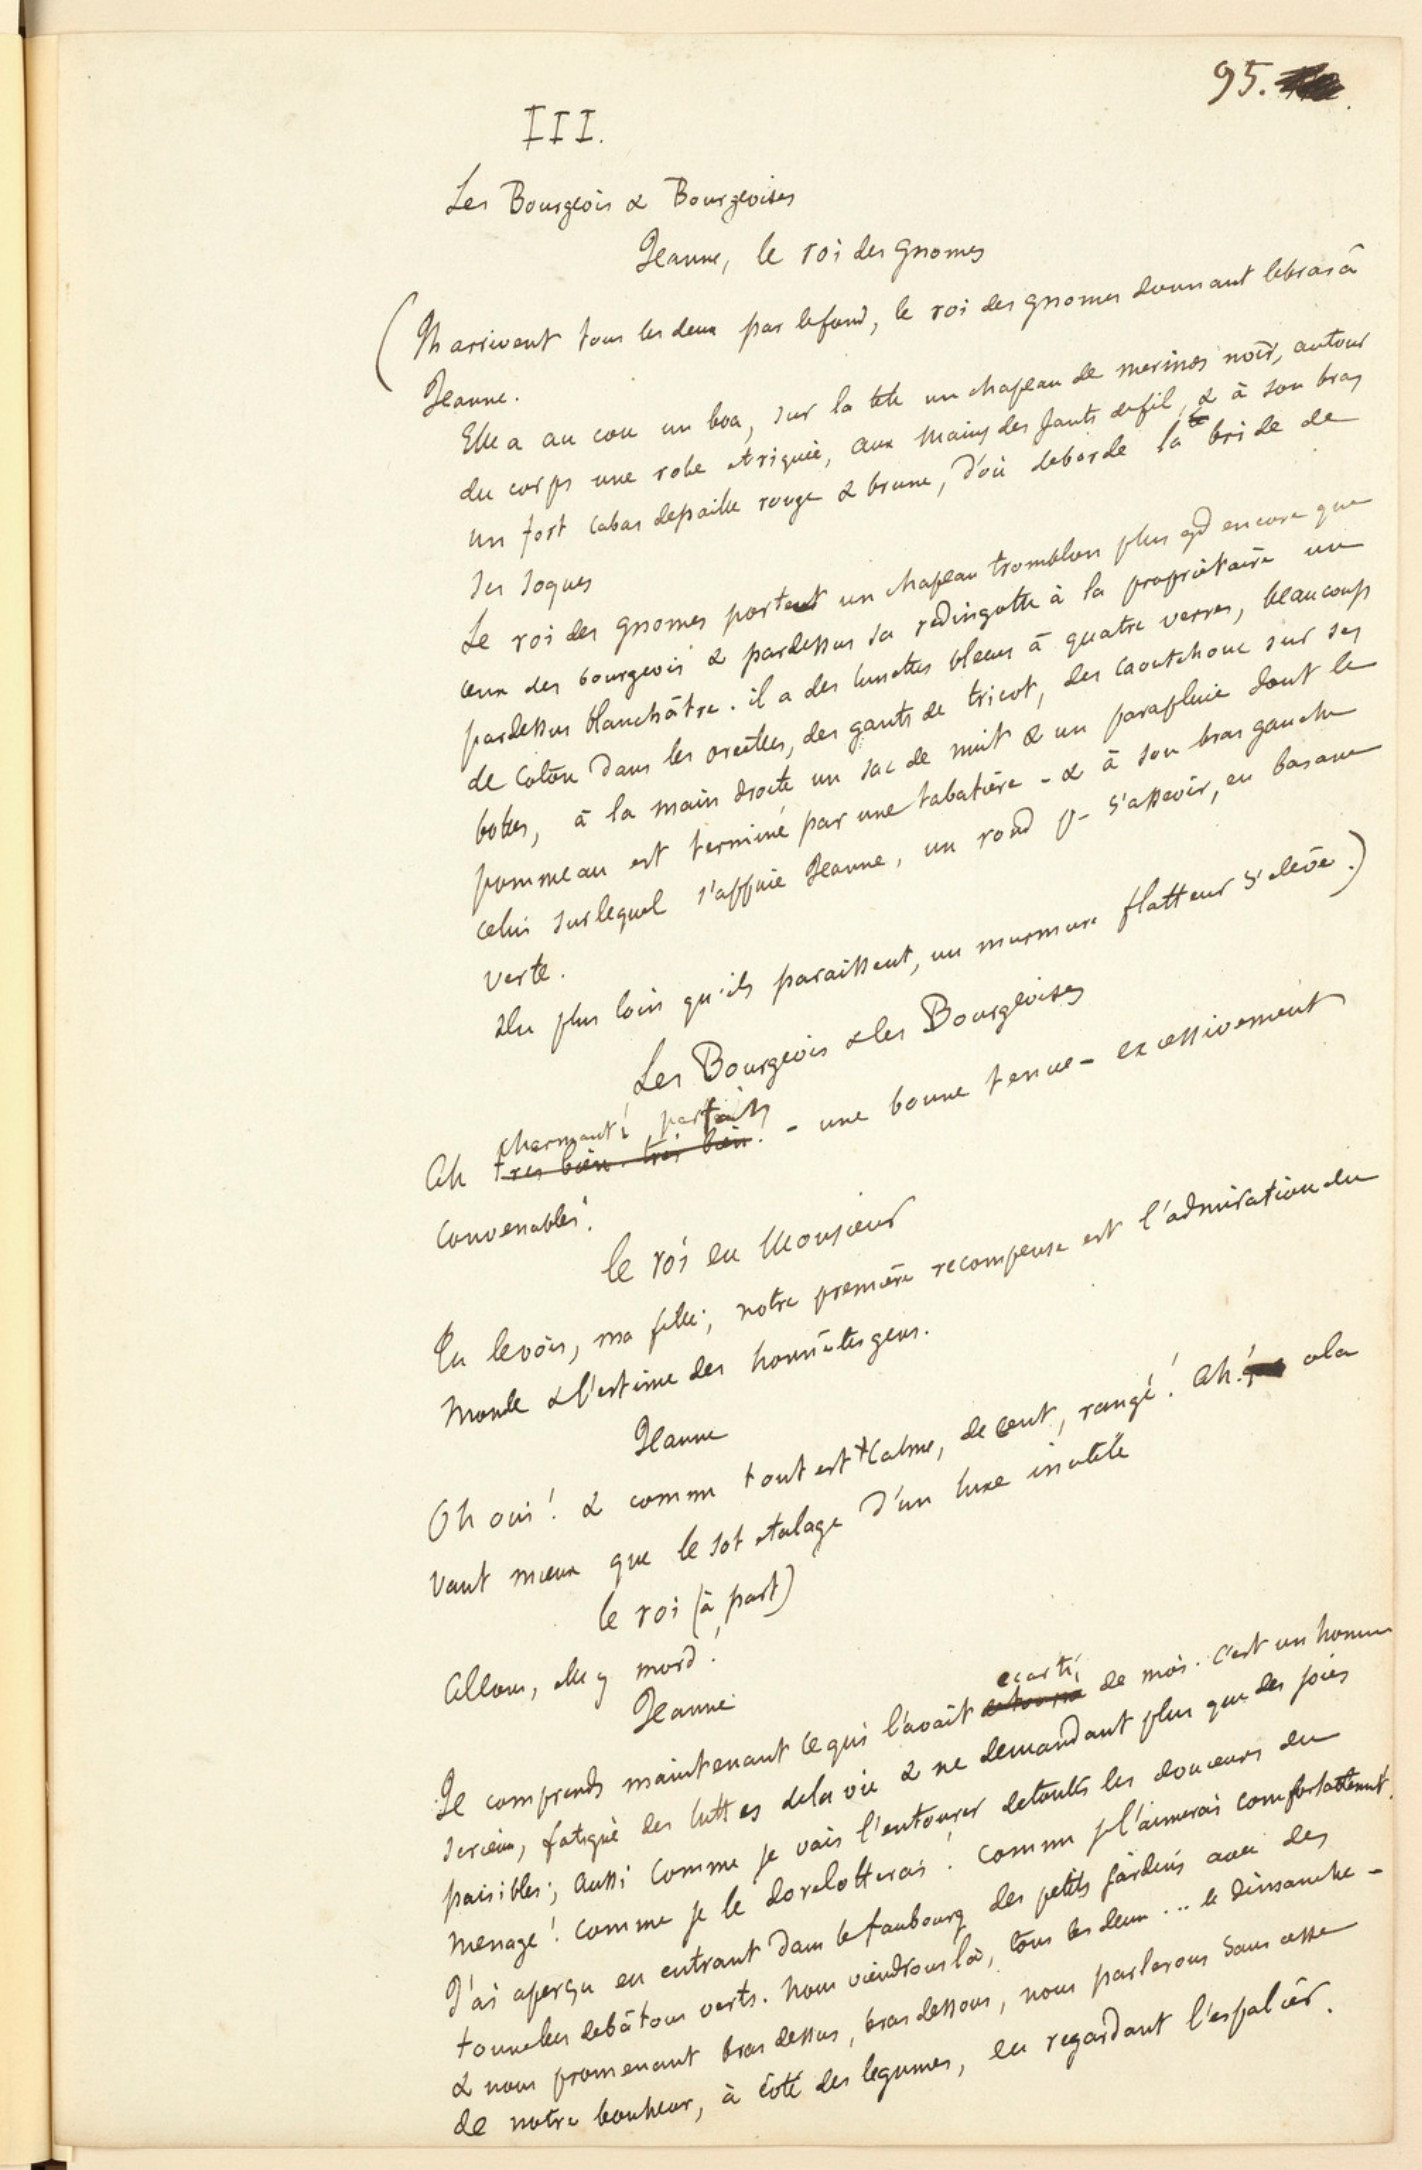 95.
III.
Les Bourgeois & Bourgeoises
Jeanne, le roi des gnomes
(Ils arrivent tous les deux par le fond, le roi des gnomes donnant le bras à
Jeanne.
Elle a au cou un boa, sur la tête un chapeau de merinos noir, autour
du corps une robe etriquée, aux mains des gants de fil, & à son bras
un fort cabas de paille rouge & brune, d'où deborde la bride de
ses soques
Le roi des gnomes portent un chapeau tromblon plus gd encore que
ceux des bourgeois & pardessus sa redingotte à la propriétaire un
pardessus blanchâtre. il a des lunettes bleues à quatre verres, beaucoup
de coton dans les oreilles, des gants de tricot, des caoutchouc sur ses
bottes, à la main droite un sac de nuit & un parapluie dont le
pommeau est terminé par une tabatière - & à son bras gauche
celui sur lequel s'appuie Jeanne, un rond pr s'asseoir, en basane
verte.
Du plus loin qu'ils paraissent, un murmure flatteur s'elève.)
Les Bourgeois & les Bourgeoises
charmant! parfaits
Ah tres bien. tres bien! - une bonne tenue - excessivement
convenables!
le roi en Monsieur
Tu le vois, ma fille; notre première recompense est l'admiration du
monde & l'estime des honnêtes gens.
Jeanne
Oh oui! & comme tout est calme, decent, rangé! Ah! cela
vaut mieux que le sot etalage d'un luxe inutile
le roi (à part)
Allons, elle y mord!
Jeanne
ecarté
Je comprends maintenant ce qui l'avait detourné de moi. C'est un homme
serieux, fatigué des luttes de la vie & ne demandant plus que des joies
paisibles; aussi comme je vais l'entourer de toutes les douceurs du
menage! comme je le dorelotterai! comme je l'aimerai comfortablement.
J'ai aperçu en entrant dans le faubourg des petits jardins avec des
tonnelles de bâtons verts. nous viendrons là, tous les deux ... le dimanche -
& nous promenant bras dessus, bras dessous, nous parlerons sans cesse
de notre bonheur, à côté des legumes, en regardant l'espalier.